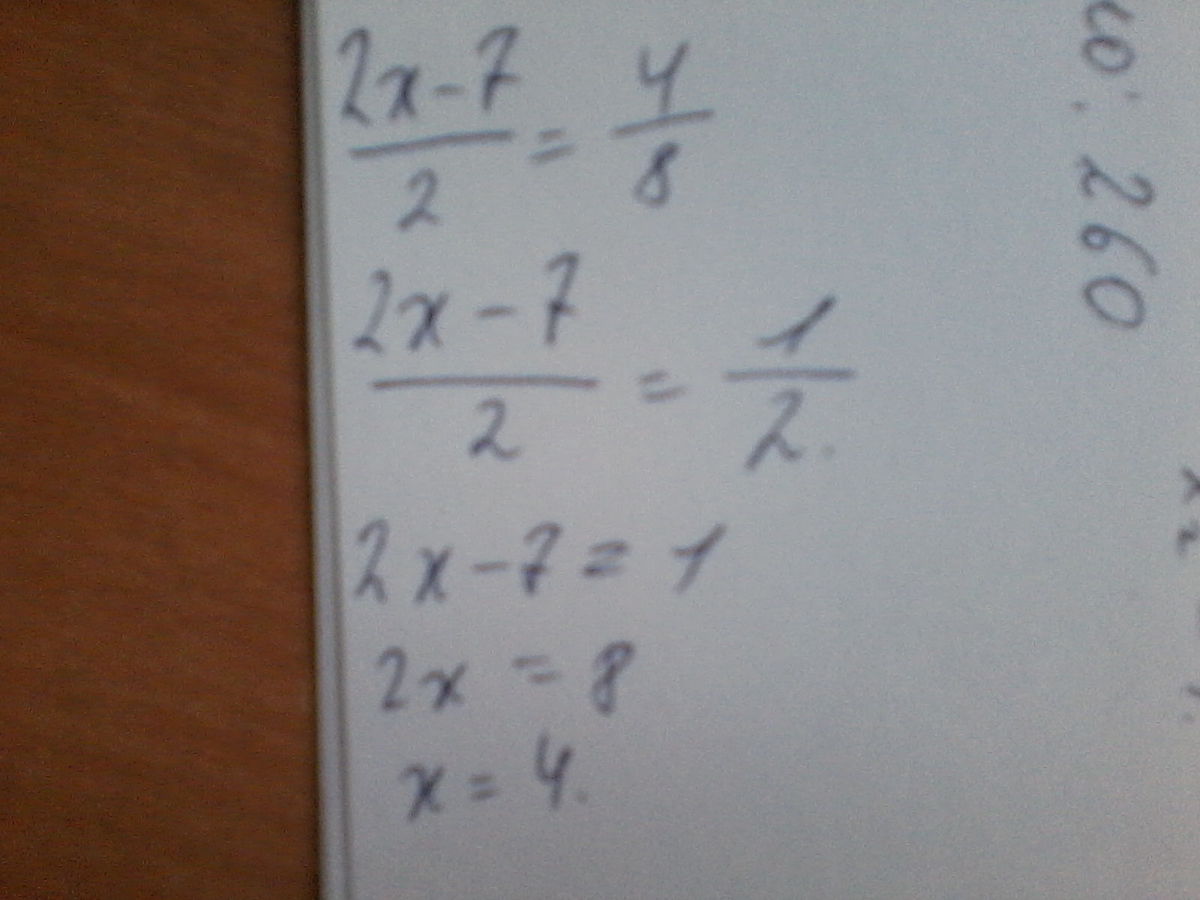 2x-7/2 = 4/8
2x-7/2 = 1/2.
2x-7=1
2x = 8
x = 4.
: 260